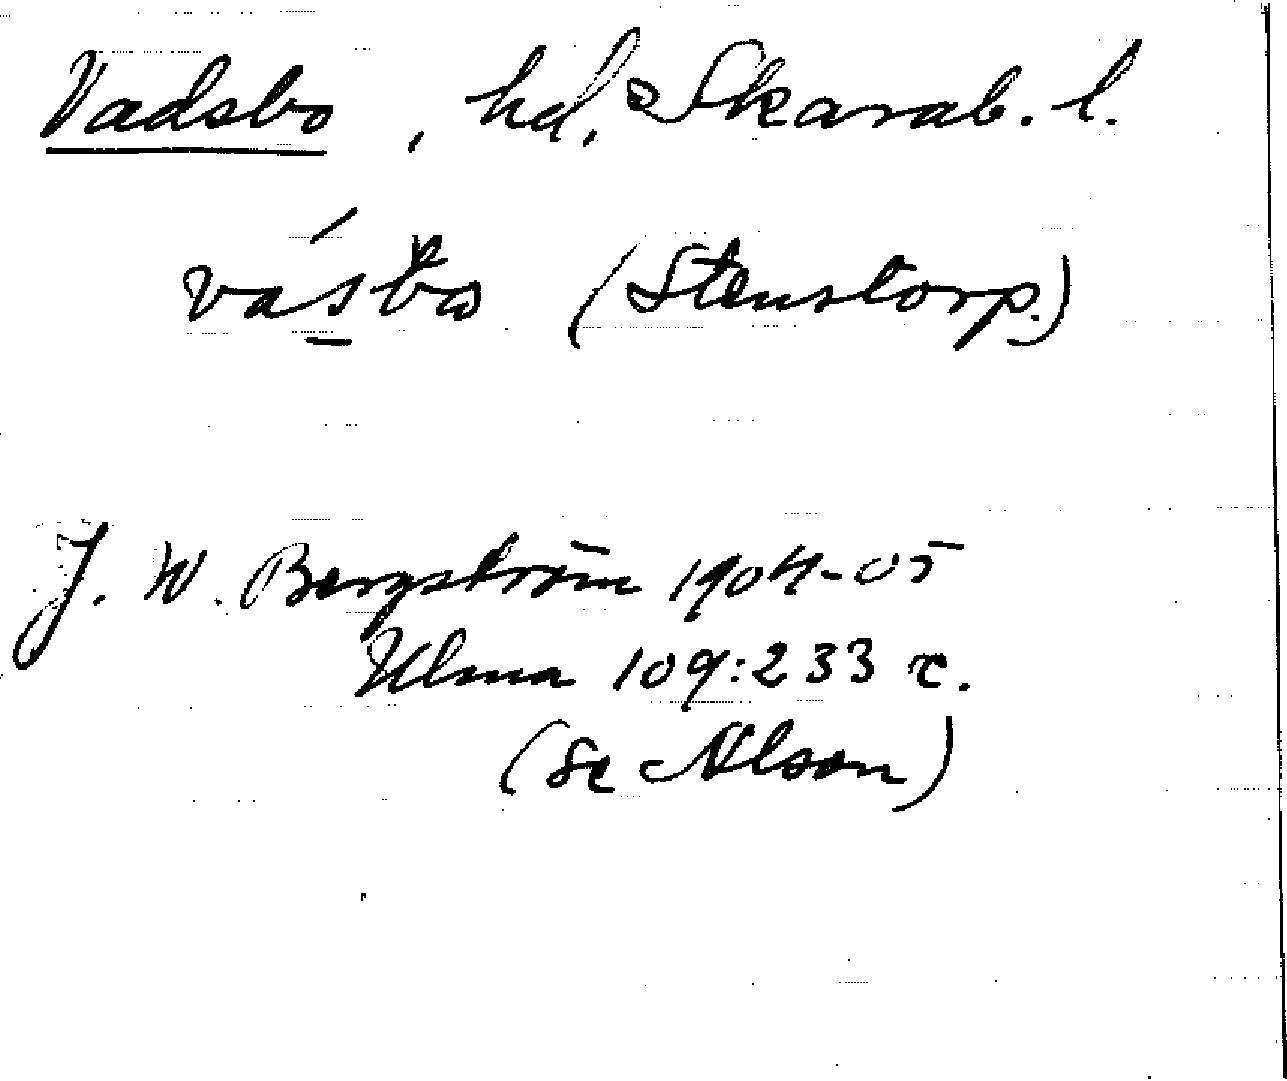 Vadsbo, hd, Skarab. l.
vásbo (Stenstorp.)
J. W. Bergström 1904-05
Ulma 109:233 c.
(se Alson)